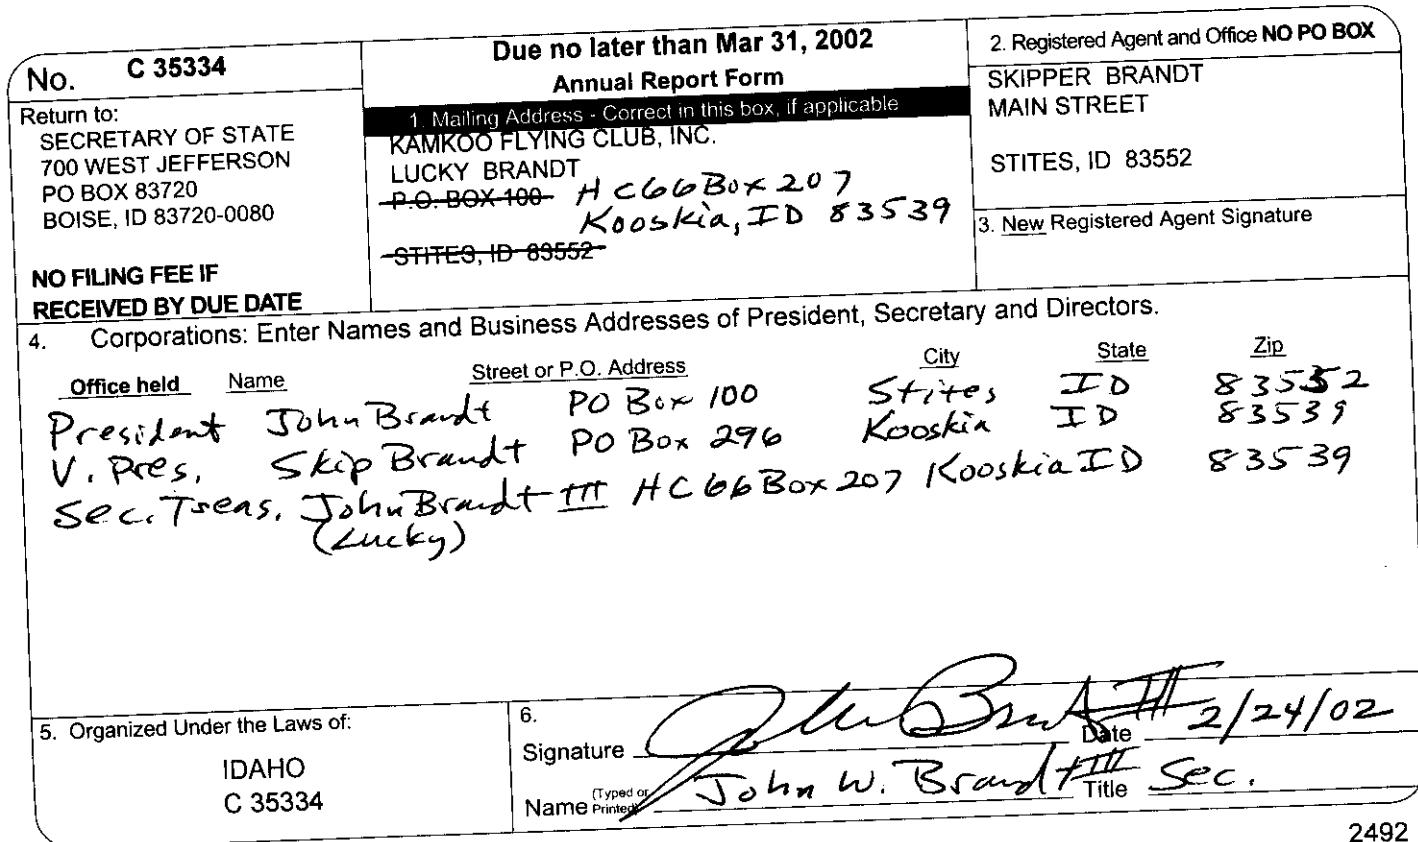 No. C 35334
Return to:
SECRETARY OF STATE
700 WEST JEFFERSON
PO BOX 83720
BOISE, ID 83720-0080
NO FILING FEE IF
RECEIVED BY DUE DATE
Due no later than Mar 31, 2002
Annual Report Form
1. Mailing Address - Correct in this box, if applicable
KAMKOO FLYING CLUB, INC.
LUCKY BRANDT
P.O. BOX 100 HC66 Box 207
Kooskia, ID 83539
STITES, ID 83552
2. Registered Agent and Office NO PO BOX
SKIPPER BRANDT
MAIN STREET
STITES, ID 83552
3. New Registered Agent Signature
4. Corporations: Enter Names and Business Addresses of President, Secretary and Directors.
Office held Name Street or P.O. Address City State Zip
President John Brandt PO Box 100 Stites ID 83552
V. Pres, Skip Brandt PO Box 296 Kooskia ID 83539
Sec. Treas. John Brandt III HC 66 Box 207 Kooskia ID 83539
(Lucky)
5. Organized Under the Laws of:
IDAHO
C 35334
6.
Signature John Brandt III Date 2/24/02
Name (Typed or Printed) John W. Brandt III Title Sec.
2492